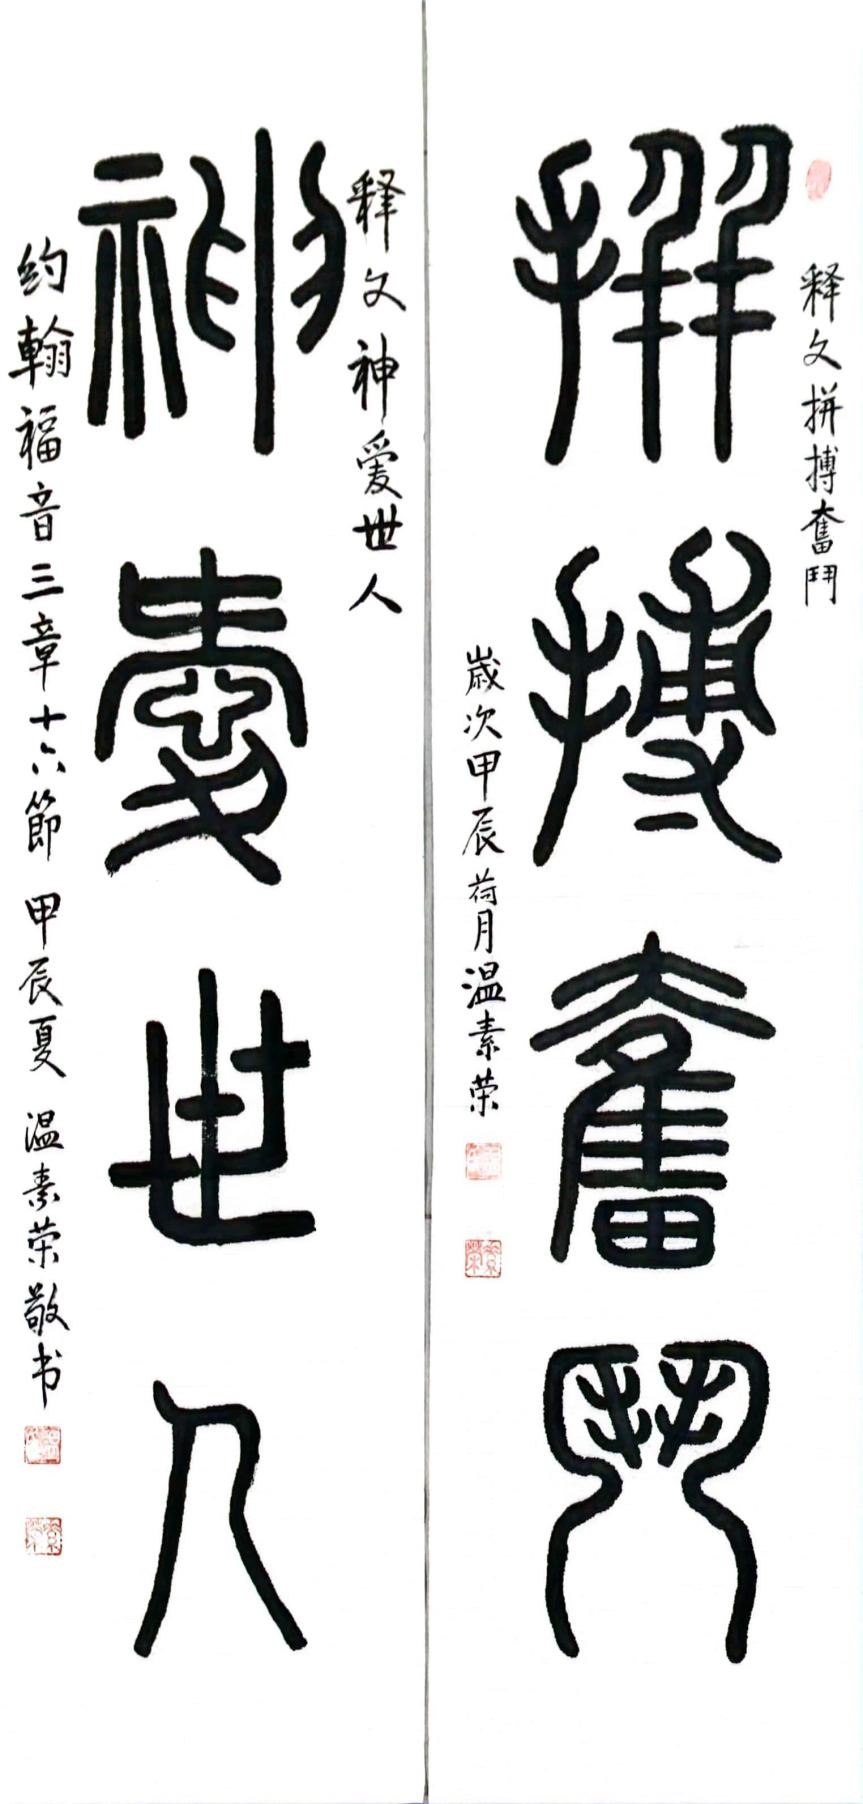 拼搏奮鬥
释文拼搏奮鬥
歲次甲辰荷月温素荣
神愛世人
释文神爱世人
约翰福音三章十六節 甲辰夏 温素荣敬书